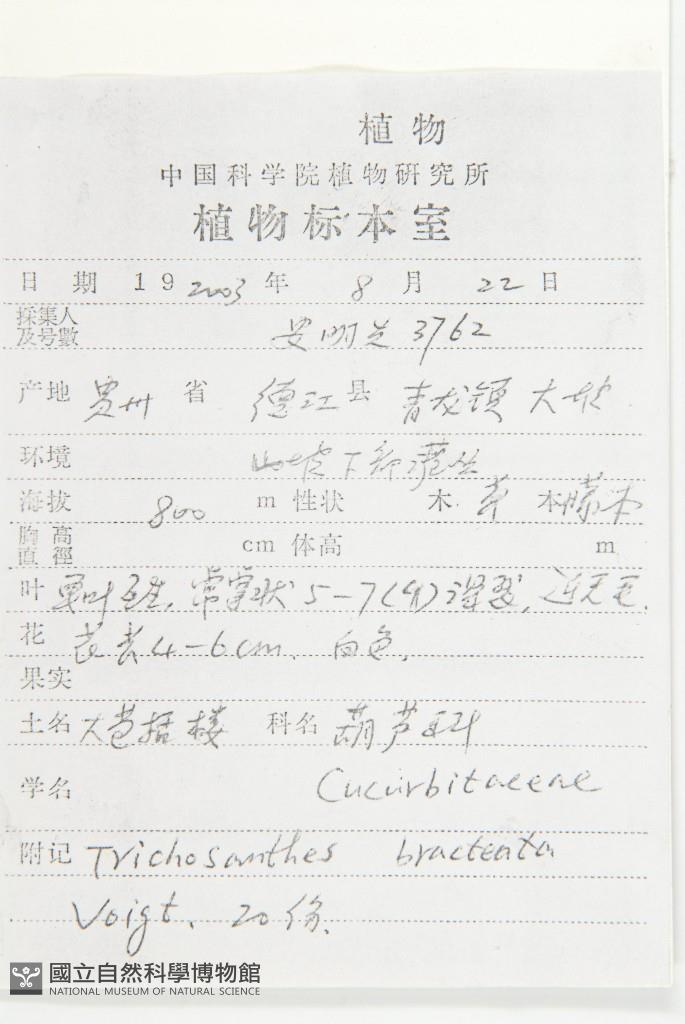 植物
中国科学院植物研究所
植物标本室
日期 19 2003 年 8 月 22 日
採集人及号數 安明先 3762
产地 贵州 省 德江 县 青龙镇 大坡
环境 山坡下部灌丛
海拔 800 m 性状 木 草 本 藤本
胸高直徑 cm 体高 m
叶 单叶互生, 常掌状 5-7(9) 深裂, 近无毛.
花 花长 4-6cm. 白色.
果实
土名 大苞括楼 科名 葫芦科
学名 Cucurbitaceae
附记 Trichosanthes bracteata
Voigt. 20份.
國立自然科學博物館
NATIONAL MUSEUM OF NATURAL SCIENCE